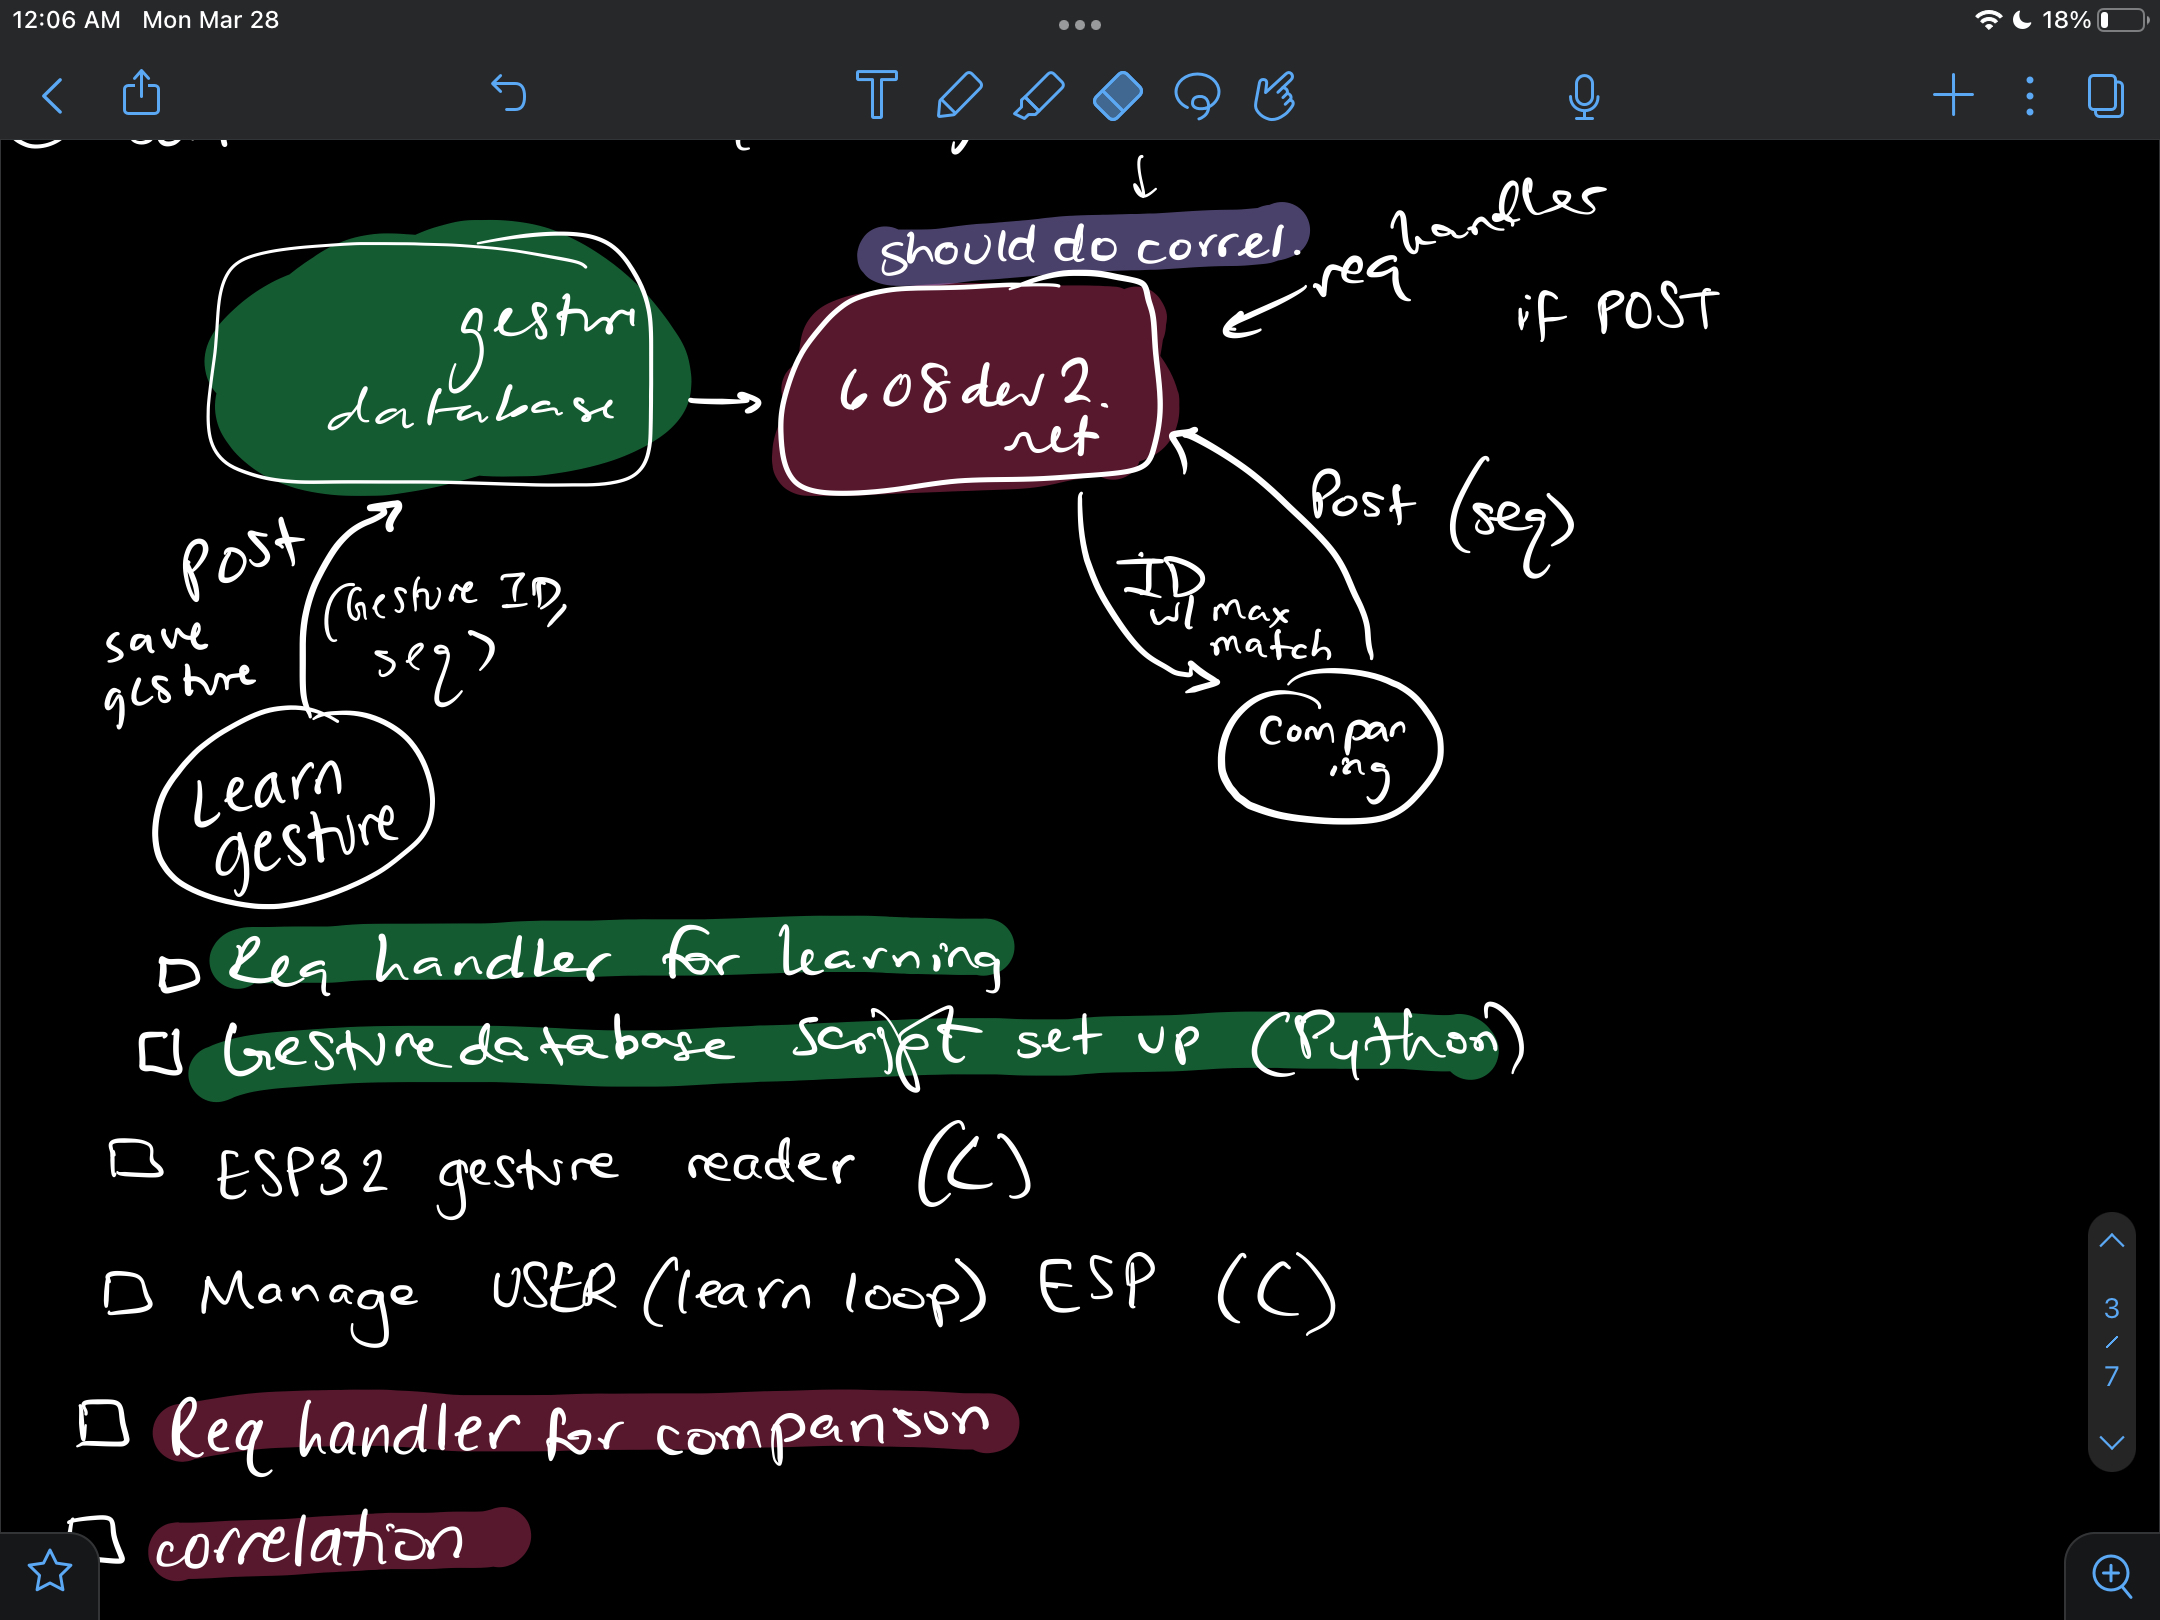 12:06 AM Mon Mar 28
18%
should do correl.
req handlers
if POST
gesture
database
608dev2.
net
POST
save
gesture
(Gesture ID,
seq)
Post (seq)
ID
w/ max
match
Learn
gesture
Compar
ing
Req handler for learning
Gesture database script set up (Python)
ESP32 gesture reader (C)
Manage USER (learn loop) ESP (C)
Req handler for comparison
correlation
3
/
7